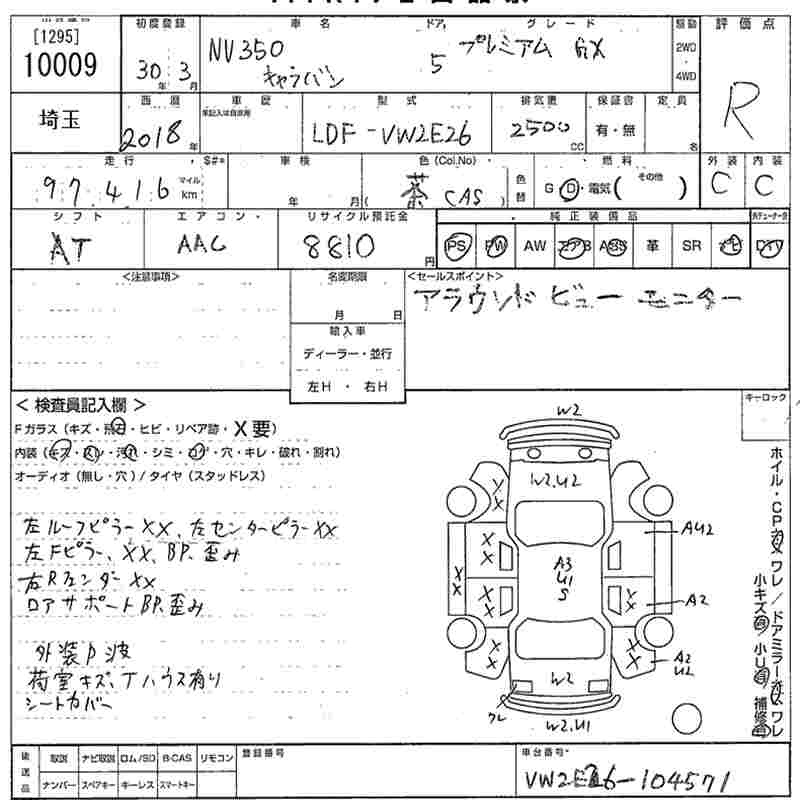 出品番号 初度登録 車名 ドア グレード 駆動 評価点
[1295]
10009
30年 3月
NV350
キャラバン
5
プレミアム GX
2WD
4WD
R
埼玉
西暦 車歴 型式 排気量 保証書 定員
2018年
LDF-VW2E26
2500 CC
有・無
名
走行 S#* 車検 色(Col.No) 燃料 外装 内装
97416 マイル km
年 月
茶 CAS
色替
G D・電気( その他 )
C C
シフト エアコン リサイクル預託金 純正装備品
AT
AAC
8810円
PS PW AW エアB ABS 革 SR ナビ DTV
<注意事項>
名変期限
月 日
輸入車
ディーラー・並行
左H・右H
<セールスポイント>
アラウンド ビュー モニター
<検査員記入欄>
キーロック
Fガラス(キズ・飛石・ヒビ・リペア跡・X要)
内装(キズ・汚れ・シミ・コゲ・穴・キレ・破れ・割れ)
オーディオ(無し・穴)/タイヤ(スタッドレス)
左ルーフピラーXX、左センターピラーXX
左Fピラー、XX、BP、歪み
左Rフェンダー XX
ロアサポートBP、歪み
外装P波
荷室キズ、Tハウス有り
シートカバー
W2
W2.U2
XX
XX
XX
XX
XX
A3
U1
S
AU2
XX
A2
XX
A2
U2
W2
ワレ
W2.U1
ホイル・CPカケ ワレ/ドアミラーカケ ワレ
小キズ有 小U有 補修有
後送品
取説 ナビ取説 ロム/SD B-CAS リモコン
ナンバー スペアキー キーレス スマートキー
登録番号
車台番号
VW2E26-104571